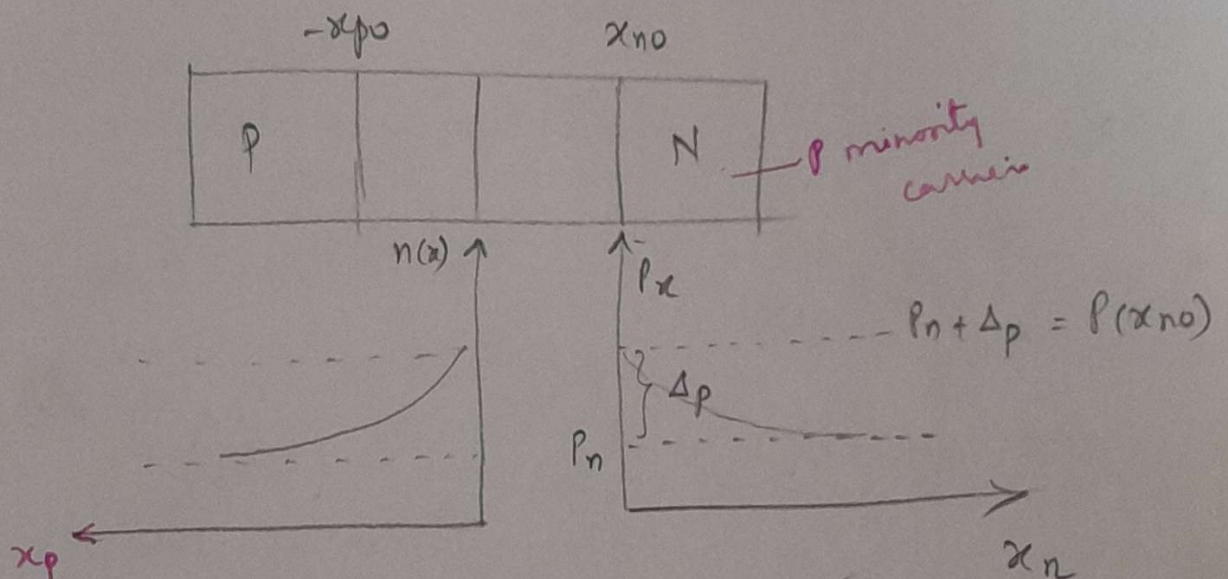 -xpo xno
P N P minority
carrier
n(x) Px
Pn + Δp = P(xno)
Δp
Pn
xp xn